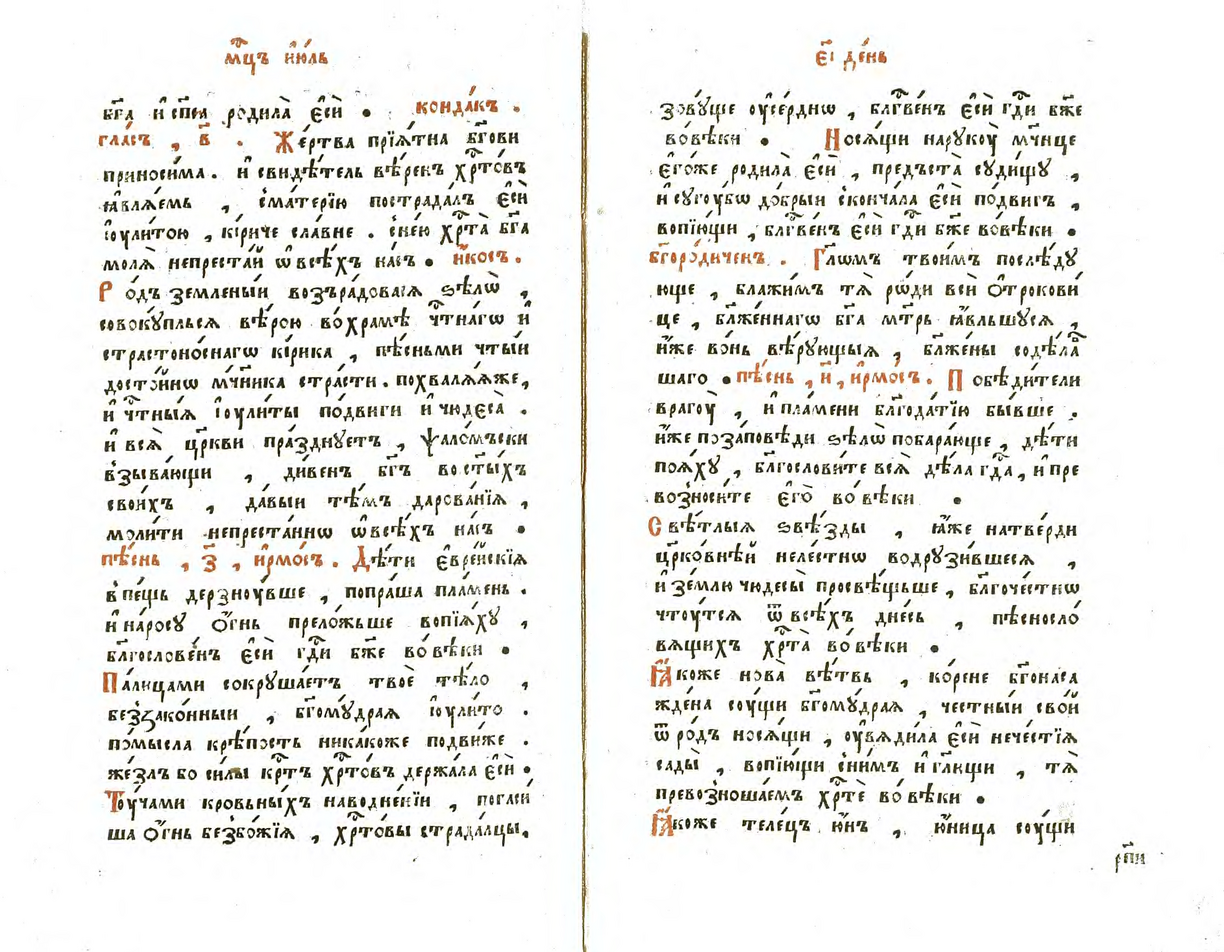 мⷭ҇цъ і҆ю́ль
бг҃а и҆ сп҃са родила̀ є҆сѝ. конда́къ.
гла́съ, в҃. Же́ртва прїѧ́тна бг҃ови
приноси́ма. и҆ свидѣ́тель вѣ́ренъ хрⷭ҇то́въ
ꙗ҆влѧ́емь, с̾ма́терїю пострада́лъ є҆сѝ
і҆ꙋли́тою, кі́риче сла́вне. с̾не́ю хрⷭ҇та̀ бг҃а
молѧ̀ непреста́й ѡ҆ всѣ́хъ на́съ. и҆́косъ.
Ро́дъ земле́ныи возъра́довасѧ ѕѣлѡ̀,
совокꙋ́пльсѧ вѣ́рою во хра́мѣ чⷭ҇тнагѡ и҆
страстоно́снагѡ кі́рика, пѣ́сньми чты́и
досто́йнѡ мч҃ника стра́сти. похвалѧ́ѧже,
и҆ чⷭ҇тныѧ і҆ꙋли́ты по́двиги и҆ чюдеса̀.
и҆ всѧ̀ цр҃кви пра́зднꙋетъ, ѱало́мъски
взыва́ющи, ди́венъ бг҃ъ во ст҃ы́хъ
свои́хъ, да́выи тѣ́мъ дарова́нїѧ,
моли́ти непреста́ннѡ ѡ҆ всѣ́хъ на́съ.
пѣ́снь, з҃, і҆рмо́съ. Дѣ́ти є҆вре́йскїѧ
в̾пе́щь дерзнꙋ́вше, попра́ша пла́мень.
и҆ на́росꙋ ѻ҆́гнь прело́жьше вопїѧ́хꙋ,
благослове́нъ є҆сѝ гдⷭ҇и бж҃е во вѣ́ки.
Па́лицами сокрꙋша́етъ твоѐ тѣ́ло,
без̾зако́нныи, бг҃омꙋ́драѧ і҆ꙋли́то.
по́мысла крѣ́пость ника́коже подви́же.
же́злъ бо си́лы крⷭ҇тъ хрⷭ҇то́въ держа́ла є҆сѝ.
Тꙋ́чами кро́вьныхъ наводне́нїи, погаси́
ша ѻ҆́гнь безбо́жїѧ, хрⷭ҇то́вы страда́льцы.
є҃і де́нь
зовꙋ́ще ᲂу҆се́рднѡ, бл҃гве́нъ є҆сѝ гдⷭ҇и бж҃е
во вѣ́ки. Носѧ́щи на рꙋкоꙋ̀ мч҃нице
є҆го́же родила̀ є҆сѝ, пре́дъста сꙋди́щꙋ,
и҆ сꙋгꙋ́бѡ до́брыи сконча́ла є҆сѝ по́двигъ,
вопїю́щи, бл҃гве́нъ є҆сѝ гдⷭ҇и бж҃е во вѣ́ки.
бг҃оро́диченъ. Гла́ѡмъ твои́мъ послѣ́дꙋ
юще, блажи́мъ тѧ̀ ро́ди всѝ ѻ҆трокови́
це, бл҃же́ннагѡ бг҃а мт҃рь ꙗ҆́вльшꙋсѧ,
и҆́же во́нь вѣ́рꙋющыѧ, бл҃же́ны содѣ́ла
шаго. пѣ́снь, и҃, і҆рмо́съ. Побѣди́тели
врагоꙋ̀, и҆ пла́мени бл҃года́тїю бы́вше.
и҆́же по за́повѣди ѕѣлѡ̀ побара́юще, дѣ́ти
поѧ́хꙋ, бл҃гослови́те всѧ̀ дѣ́ла гдⷭ҇а, и҆ пре
возноси́те є҆го̀ во вѣ́ки.
Свѣ́тлыѧ ѕвѣ́зды, ꙗ҆́же на тве́рди
цр҃ко́внѣй неле́стнѡ водрꙋзи́вшесѧ,
и҆ зе́млю чюдесы̀ просвѣ́щьше, бл҃гоче́стнѡ
чтꙋ́тсѧ ѿ всѣ́хъ дне́сь, пѣсносло́
вѧщихъ хрⷭ҇та̀ во вѣ́ки.
Ꙗ҆́коже нова̀ вѣ́твь, ко́рене бг҃онаса
жде́на сꙋ́щи бг҃омꙋ́драѧ, че́стныи сво́й
ѿ ро́дъ носѧ́щи, ᲂу҆вѧди́ла є҆сѝ нече́стїѧ
сады̀, вопїю́щи с̾ни́мъ и҆ гл҃ющи, тѧ̀
превозноша́емъ хрⷭ҇тѐ во вѣ́ки.
Ꙗ҆́коже теле́цъ ю҆́нъ, ю҆́ница сꙋ́щи
рп҃и